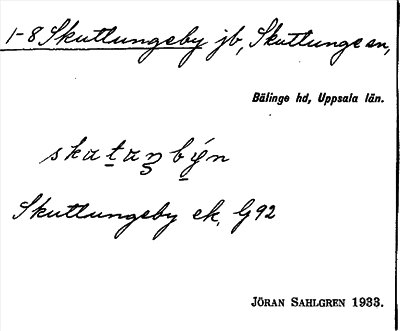 1-8 Skuttungeby jb, Skuttunge sn,
Bälinge hd, Uppsala län.
skataŋbýn
Skuttungeby ek. G92
JÖRAN SAHLGREN 1933.